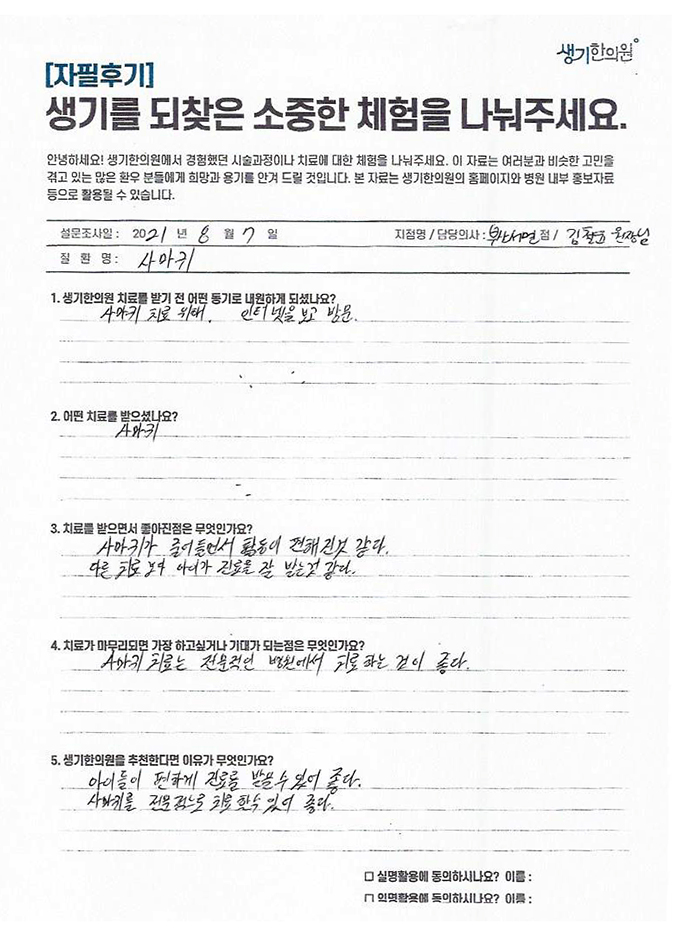 생기한의원
[자필후기]
생기를 되찾은 소중한 체험을 나눠주세요.
안녕하세요! 생기한의원에서 경험했던 시술과정이나 치료에 대한 체험을 나눠주세요. 이 자료는 여러분과 비슷한 고민을
겪고 있는 많은 환우 분들에게 희망과 용기를 안겨 드릴 것입니다. 본 자료는 생기한의원의 홈페이지와 병원 내부 홍보자료
등으로 활용될 수 있습니다.
설문조사일 : 2021 년 8 월 7 일 지점명 / 담당의사 : 부산서면점 / 김철윤 원장님
질 환 명 : 사마귀
1. 생기한의원 치료를 받기 전 어떤 동기로 내원하게 되셨나요?
사마귀 치료 위해. 인터넷을 보고 방문.
2. 어떤 치료를 받으셨나요?
사마귀
3. 치료를 받으면서 좋아진점은 무엇인가요?
사마귀가 줄어들면서 활동이 편해진것 같다.
다른 치료 보다 아이가 진료를 잘 받는것 같다.
4. 치료가 마무리되면 가장 하고싶거나 기대가 되는점은 무엇인가요?
사마귀 치료는 전문적인 병원에서 치료하는 것이 좋다.
5. 생기한의원을 추천한다면 이유가 무엇인가요?
아이들이 편하게 진료를 받을수 있어 좋다.
사마귀를 전문점으로 치료할수 있어 좋다.
□ 실명활용에 동의하시나요? 이름 :
□ 익명활용에 동의하시나요? 이름 :